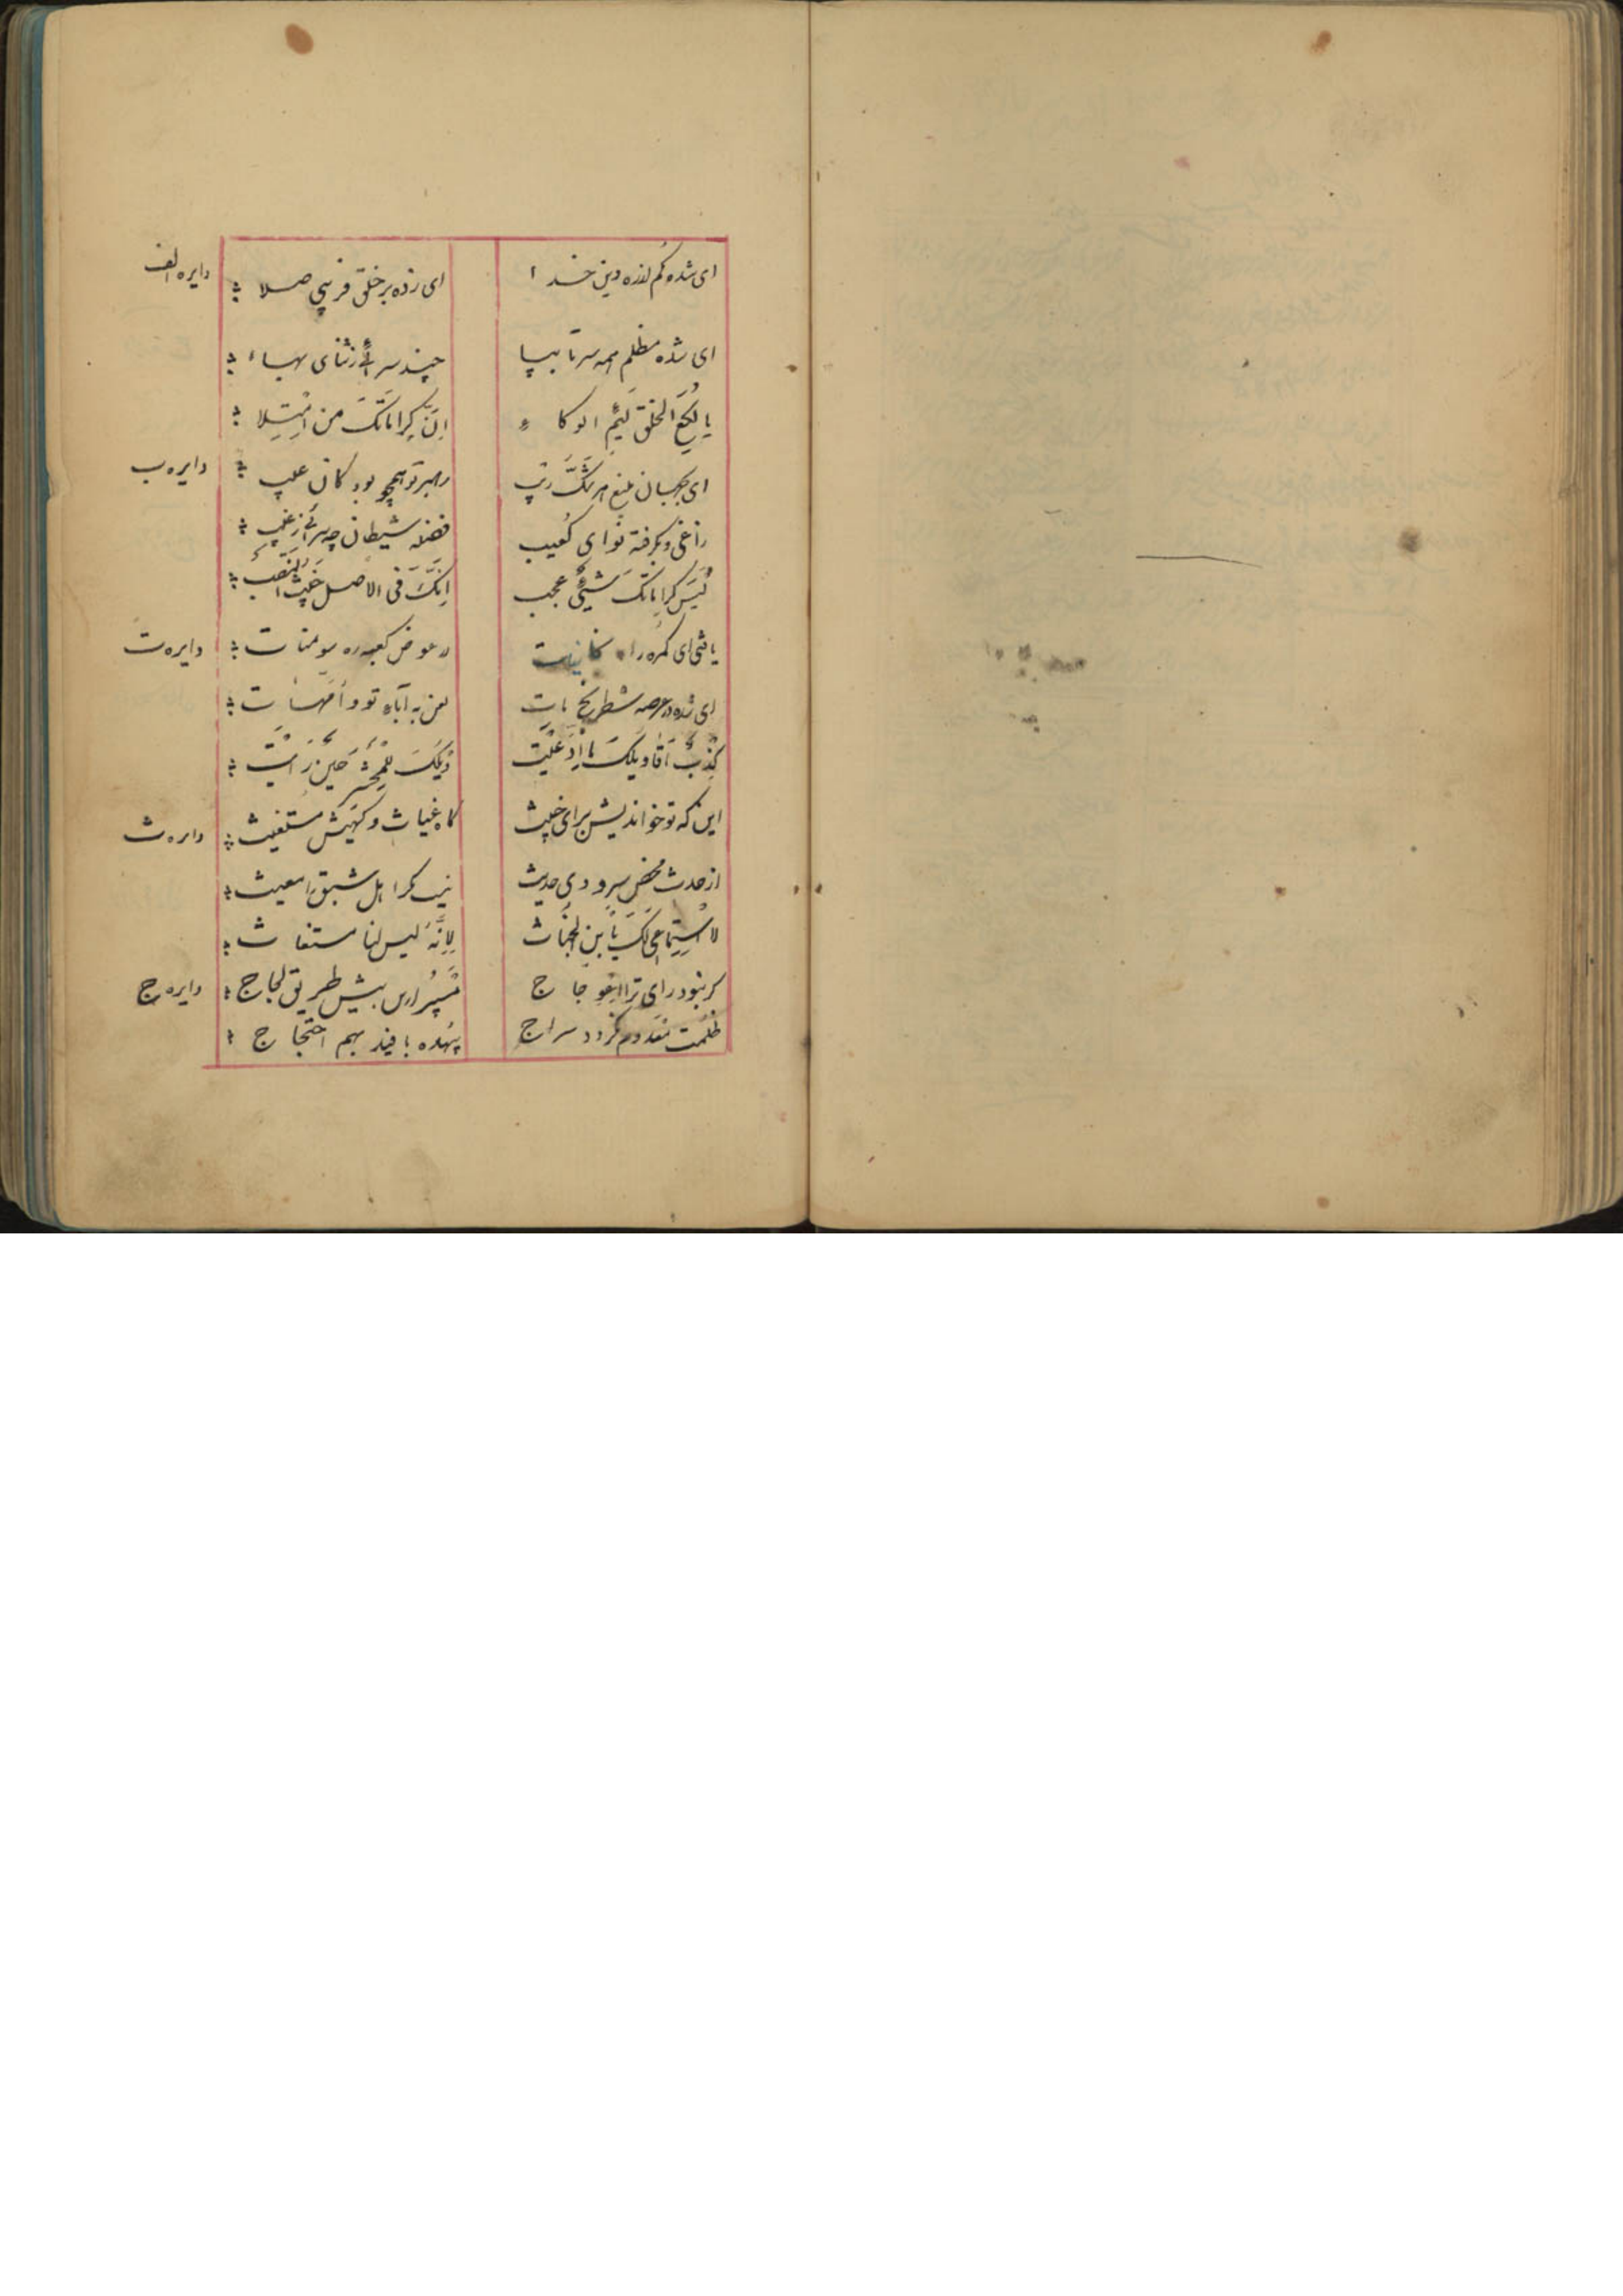 ای شده گم از ره دین خدا
ای زده بر خلق فریبی صلا
دایره الف
ای شده مظلم همه سر تا بپا
چند سرائی ز ثنای بهاء
یا لُکَعَ الخلق لئیم الوکاء
اِنَّ کراماتک من
دایره ب
رهبر تو همچو بود کان
ای بجهان منبع هر شکّ و ریب
زاغی و بگرفته نوای کعیب
فضله شیطان چه سرائی ز غیب
لیس کراماتک شیئی عجب
انّک فی الاصل خبیث النسب
دایره ت
در عوض کعبه ره سومنات
ای شده در عرصه شطرنج مات
لعن به آباء تو و امّهات
کذب اقاویلک ما ادّعیت
ویلک للمحشر حین
دایره ث
این که تو خواندیش برای خبیث
گاه غیاث و گهیش مستغیث
از حدث محض سرودی حدیث
نیست کرا اهل شبق را مغیث
لا استماعی لک یا بن الخباث
لانّه لیس لنا مستغاث
دایره ج
گر نبود رای ترا اعوجاج
مسپر ازین بیش طریق لجاج
ظلمت نگردد سراج
بیهده بافیدبهم احتجاج